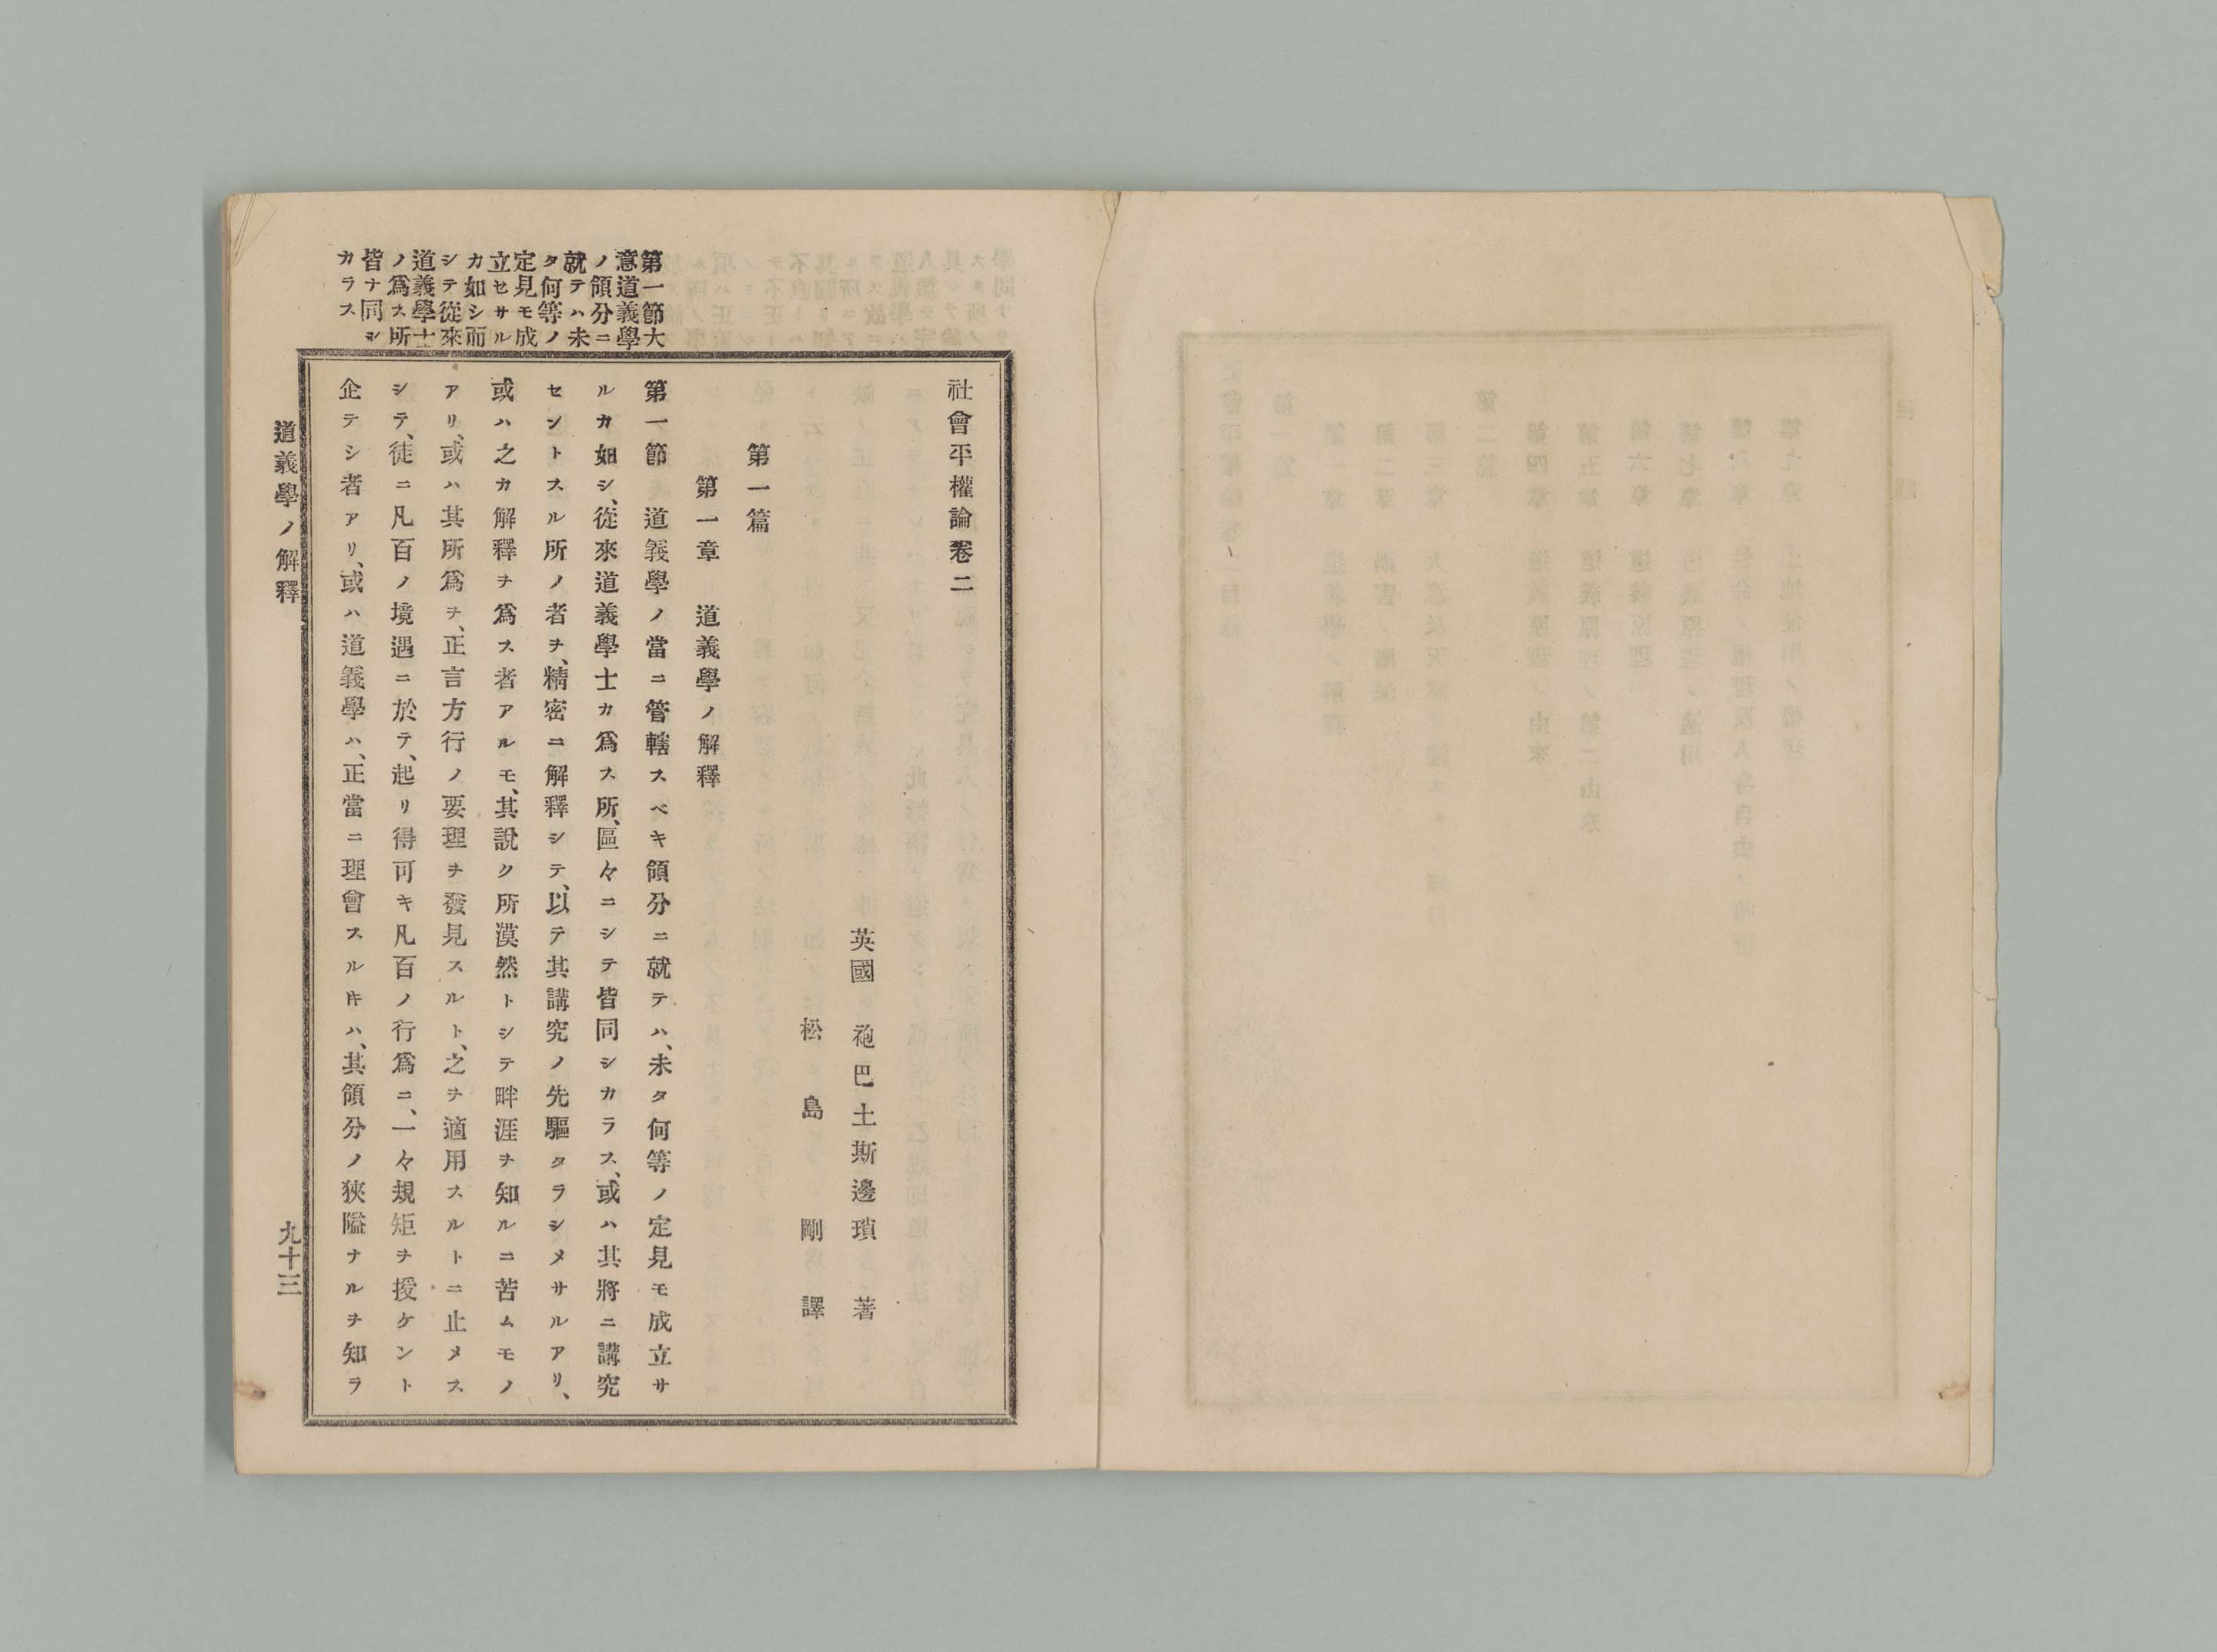 社會平權論卷二
英國 袍巴土斯邊瑣 著
松島剛 譯
第一篇
第一章 道義學ノ解釋
第一節 道義學ノ當ニ管轄スベキ領分ニ就テハ、未タ何等ノ定見モ成立サ
ルカ如シ、從來道義學士カ爲ス所、區々ニシテ皆同シカラス、或ハ其將ニ講究
セントスル所ノ者ヲ、精密ニ解釋シテ、以テ其講究ノ先驅タラシメサルアリ、
或ハ之カ解釋ヲ爲ス者アルモ、其說ク所漠然トシテ畔涯ヲ知ルニ苦ムモノ
アリ、或ハ其所爲ヲ、正言方行ノ要理ヲ發見スルト、之ヲ適用スルトニ止メス
シテ、徒ニ凡百ノ境遇ニ於テ、起リ得可キ凡百ノ行爲ニ、一々規矩ヲ授ケント
企テシ者アリ、或ハ道義學ハ、正當ニ理會スルヿキハ、其領分ノ狹隘ナルヲ知ラ
第一節大
意道義學
ノ領分ニ
就テハ未
タ何等ノ
定見モ成
立セサル
カ如シ而
シテ從來
道義學士
ノ爲ス所
皆ナ同シ
カラス
道義學ノ解釋
九十三